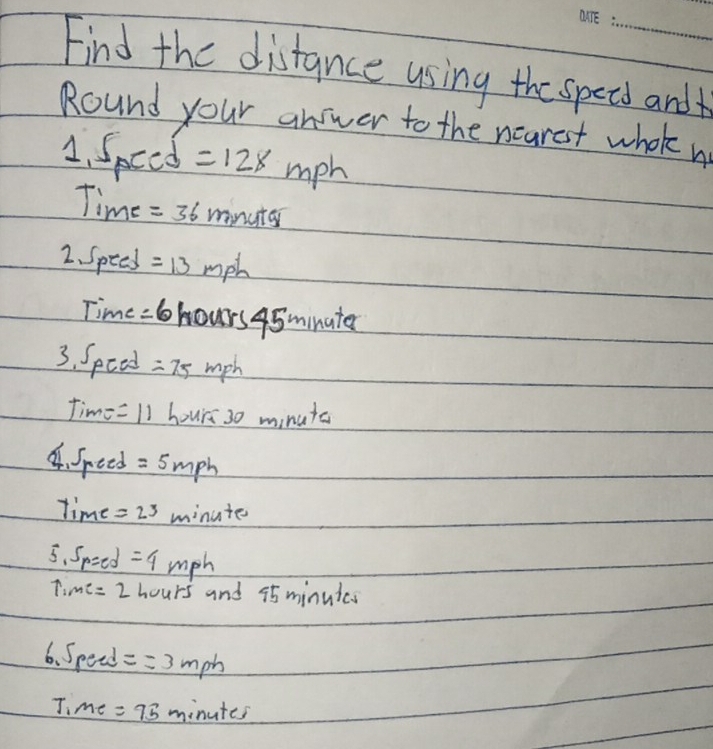 DATE :
Find the distance using the speed and
Round your answer to the nearest whole
1. Speed = 128 mph
Time = 36 minutes
2. Speed = 13 mph
Time = 6 hours 45 minutes
3. Speed = 75 mph
Time = 11 hours 30 minutes
4. Speed = 5 mph
Time = 23 minutes
5. Speed = 4 mph
Time = 2 hours and 45 minutes
6. Speed = = 3 mph
Time = 95 minutes